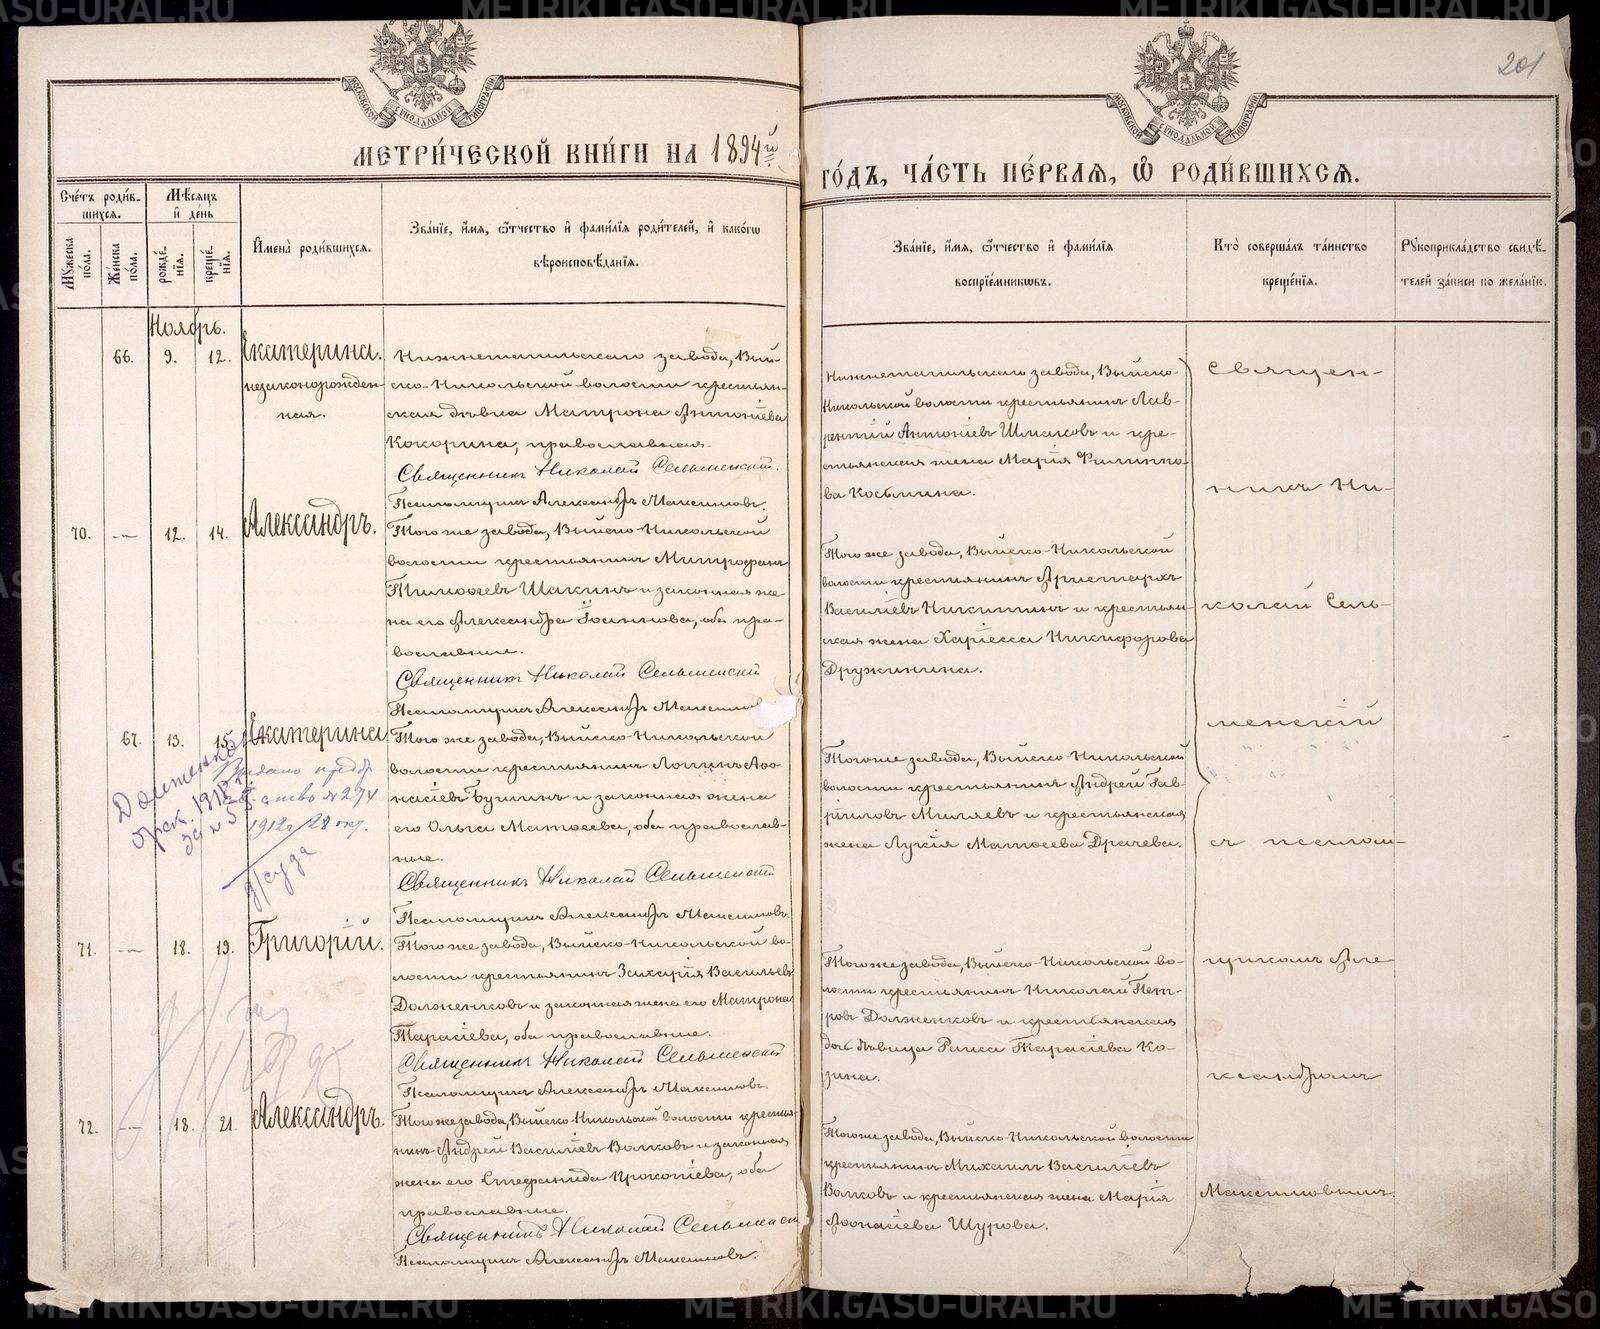 201
МОСКОВСКОЙ СѴНОДАЛЬНОЙ ТИПОГРАФІИ
МОСКОВСКОЙ СѴНОДАЛЬНОЙ ТИПОГРАФІИ
МЕТРИ́ЧЕСКОЙ КНИ́ГИ НА 1894й
ГО́ДЪ, ЧА́СТЬ ПЕ́РВАЯ, Ѡ РОДИ́ВШИХСЯ.
Сче́тъ роди́в-
шихся.
Мꙋ́жеска по́ла.
Же́нска по́ла.
Мѣ́сяцъ
и҆ де́нь
рожде́-
нїя.
креще́-
нїя.
И҆мена̀ роди́вшихся.
Зва́нїе, и҆́мя, ѻ҆́тчество и҆ фами́лїя роди́телей, и҆ како́гѡ
вѣроисповѣ́данїя.
Зва́нїе, и҆́мя, ѻ҆́тчество и҆ фами́лїя
воспрїе́мникѡвъ.
Кто̀ соверша́лъ та́инство
креще́нїя.
Рꙋкоприкла́дство свидѣ́-
телей за́писи по жела́нїю.
Ноябрь.
66. 9. 12. Екатерина.
незаконорожден-
ная.
Нижнетагильскаго завода, Вый-
ско-Никольской волости крестьян-
ская дѣвка Матрона Антоніева
Кокорина, православная.
Священникъ Николай Сельменскій.
Псаломщикъ Александръ Максимовъ.
Нижнетагильскаго завода, Выйско-
Никольской волости крестьянинъ Лав-
рентій Антоніевъ Шмаковъ и кре-
стьянская жена Марія Филиппо-
ва Косьмина.
70. -„- 12. 14. Александръ.
Того же завода, Выйско-Никольской
волости крестьянинъ Митрофанъ
Тимоѳеевъ Шакинъ и законная же-
на его Александра Іоаннова, оба пра-
вославные.
Священникъ Николай Сельменскій
Псаломщикъ Александръ Максимов
Того же завода, Выйско-Никольской
волости крестьянинъ Аристархъ
Василіевъ Никитинъ и крестьян-
ская жена Харіесса Никифорова
Дружинина.
67. 13. 15. Екатерина
Того же завода, Выйско-Никольской
волости крестьянинъ Логинъ Аѳо-
насіевъ Бушинъ и законная жена
его Ольга Матѳеева, оба православ-
ные.
Священникъ Николай Сельменскій
Псаломщикъ Александръ Максимовъ.
Того же завода, Выйско-Никольской
волости крестьянинъ Андрей Гав-
ріиловъ Миляевъ и крестьянская
жена Лукія Матѳеева Драчева.
1912 г. 28 окт.
71. -„- 18. 19. Григорій.
Того же завода, Выйско-Никольской во-
лости крестьянинъ Захарія Васильевъ
Долженковъ и законная жена его Матрона
Тарасіева, оба православные.
Священникъ Николай Сельменскій
Псаломщикъ Александръ Максимовъ.
Того же завода, Выйско-Никольской во-
лости крестьянинъ Николай Пет-
ровъ Долженковъ и крестьянская
дочь дѣвица Раиса Тарасіева Ко-
зина.
72. -„- 18. 21. Александръ.
Того же завода, Выйско-Никольской волости крестья-
нинъ Андрей Василіевъ Волковъ и законная
жена его Стефанида Прокопіева, оба
православные.
Священникъ Николай Сельменск
Псаломщикъ Александръ Максимовъ.
Того же завода, Выйско-Никольской волости
крестьянинъ Михаилъ Василіевъ
Волковъ и крестьянская жена Марія
Аѳонасіева Шурова.
Священ-
никъ Ни-
колай Сель-
менскій
съ псалом-
щикомъ Але
ксандромъ
Максимовымъ.
METRIKI.GASO-URAL.RU